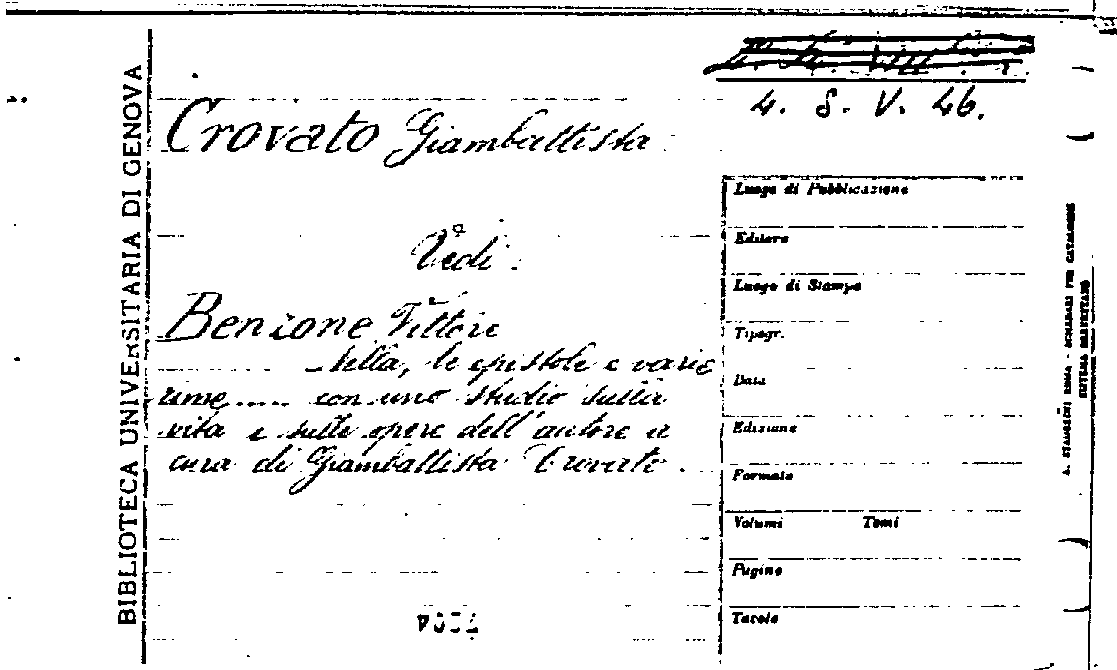 4. S. V. 46.
Crovato Giambattista
Vedi:
Benzone Vittore
Nella, le epistole e varie
rime..... con uno studio sulla
vita e sulle opere dell'autore a
cura di Giambattista Crovato.
BIBLIOTECA UNIVERSITARIA DI GENOVA
Luogo di Pubblicazione
Editore
Luogo di Stampa
Tipogr.
Data
Edizione
Formato
Volumi Tomi
Pagine
Tavole
A. STADERINI ROMA - SCHEDARI PER CATALOGHI
SISTEMA